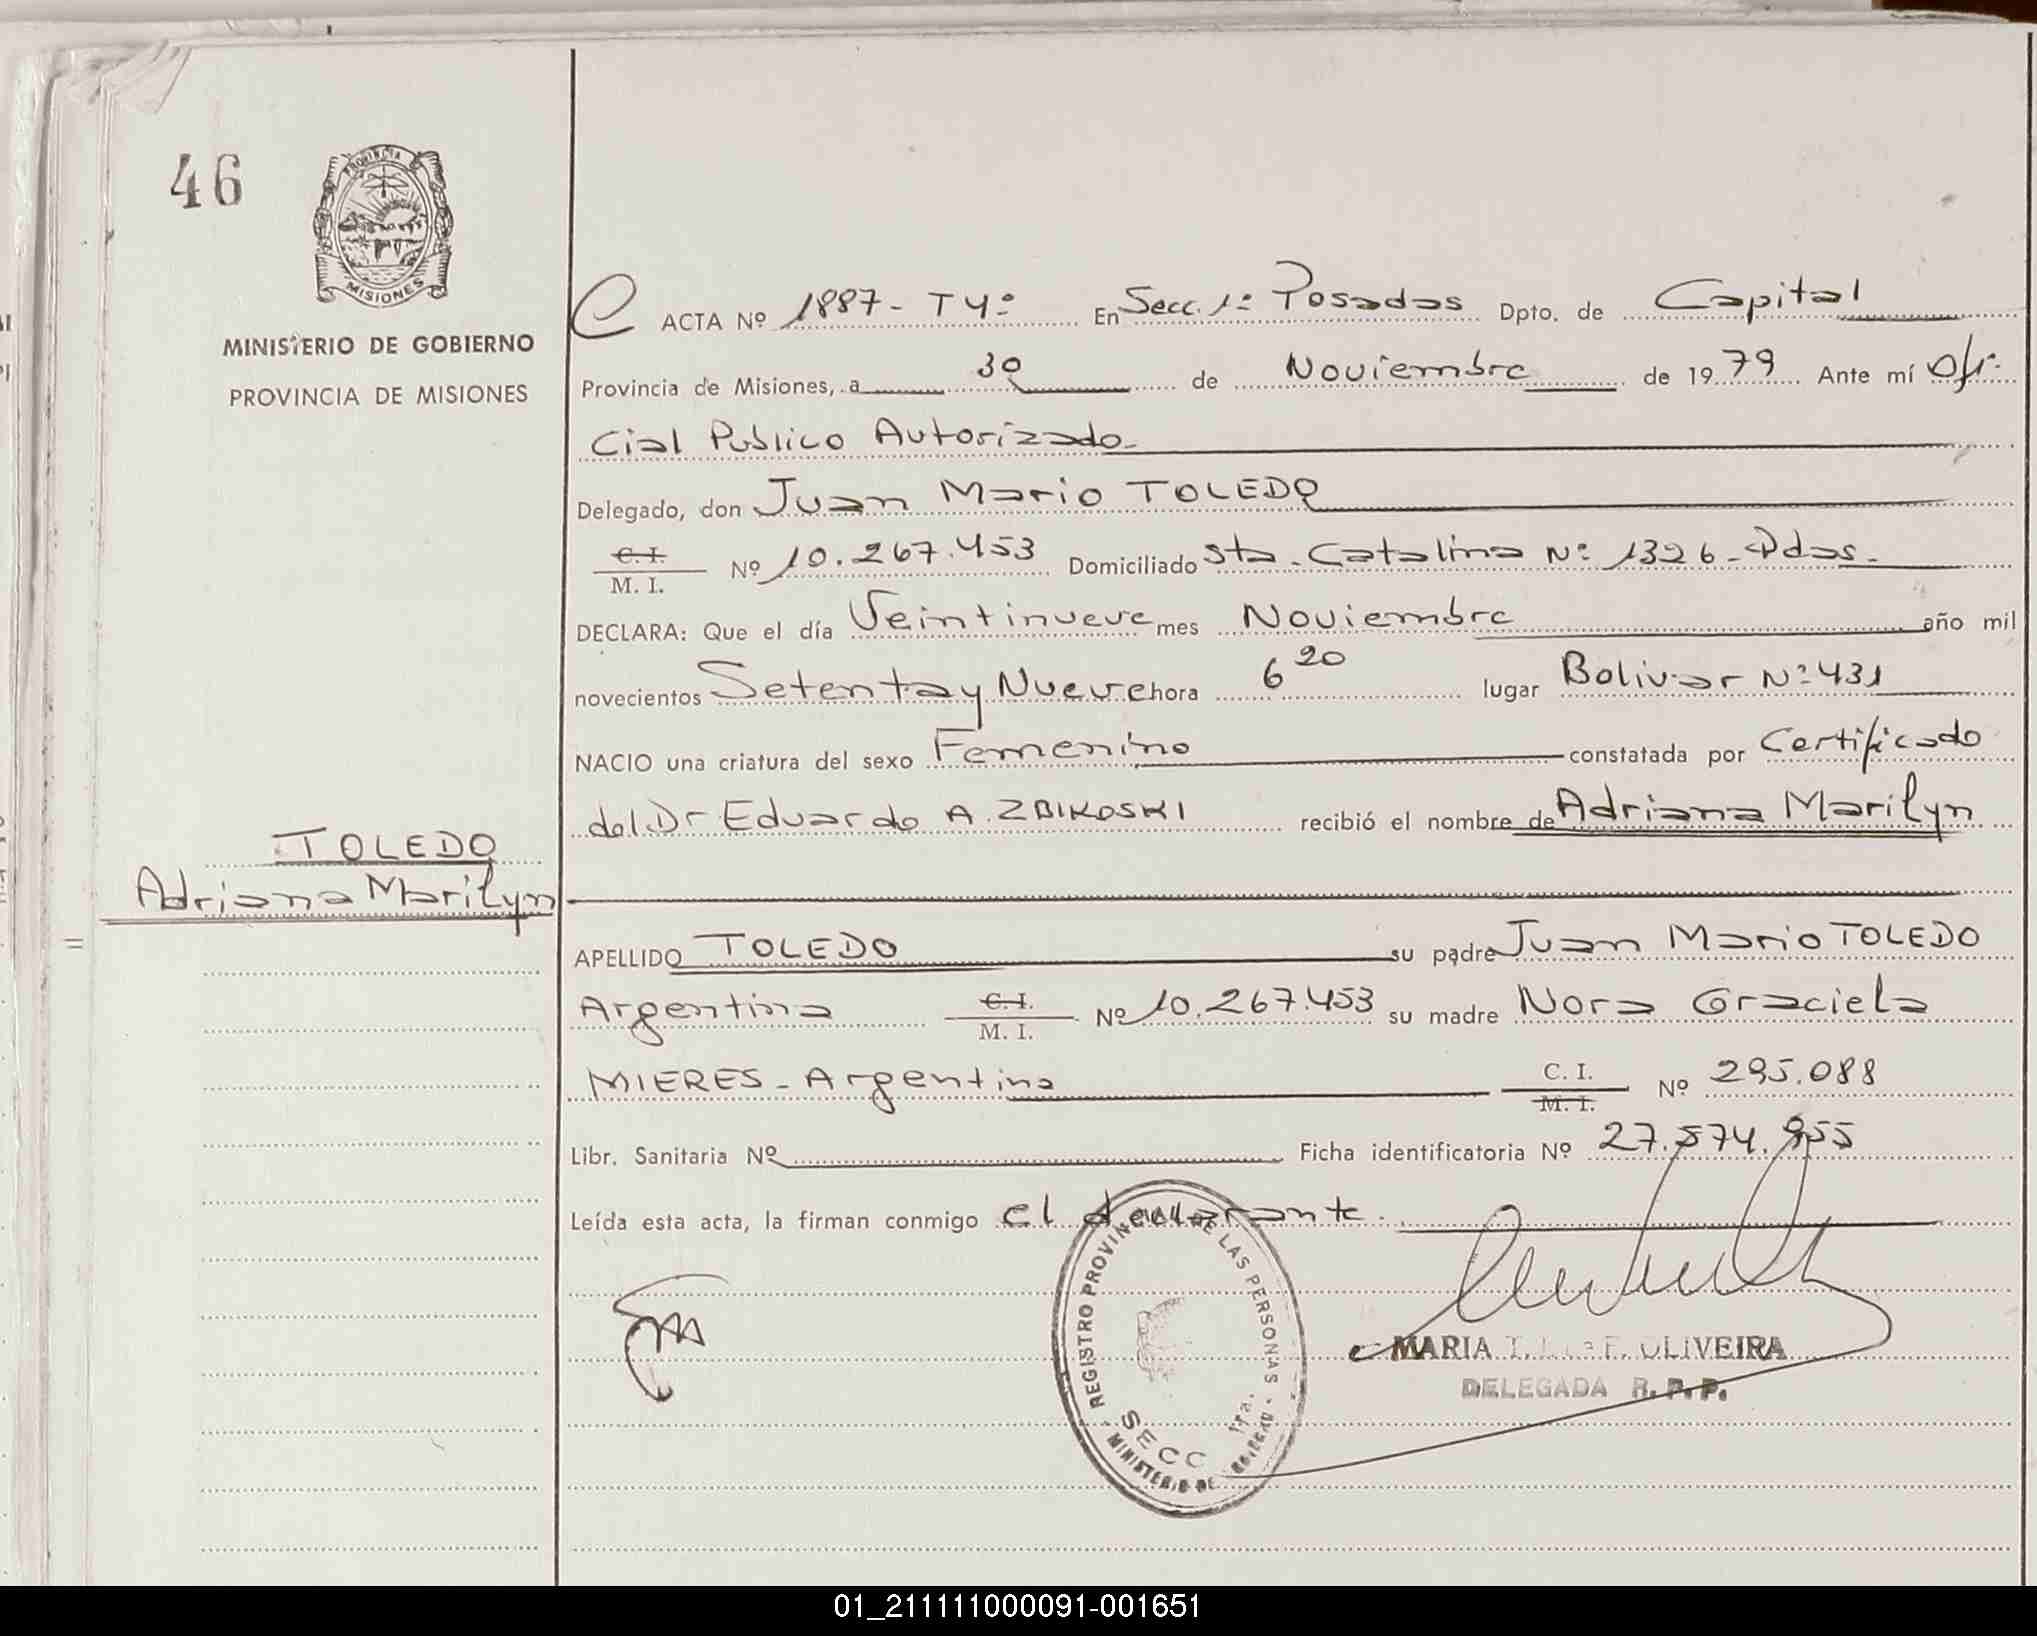 46
PROVINCIA
MISIONES
MINISTERIO DE GOBIERNO
PROVINCIA DE MISIONES
TOLEDO
Adriana Marilyn
ACTA Nº 1887- T4º En Secc. 1º Posadas Dpto. de Capital
Provincia de Misiones, a 30 de Noviembre de 1979 Ante mí Ofi-
cial Publico Autorizado-
Delegado, don Juan Mario TOLEDO
C.I.
M. I. Nº 10.267.453 Domiciliado Sta. Catalina Nº 1326-Pdas-
DECLARA: Que el día Veintinueve mes Noviembre año mil
novecientos Setenta y Nueve hora 6 20 lugar Bolivar Nº 431
NACIO una criatura del sexo Femenino constatada por Certificado
del Dr Eduardo A. ZBIKOSKI recibió el nombre de Adriana Marilyn
APELLIDO TOLEDO su padre Juan Mario TOLEDO
Argentina C.I. M. I. Nº 10.267.453 su madre Nora Graciela
MIERES-Argentina C. I. M. I. Nº 295.088
Libr. Sanitaria Nº Ficha identificatoria Nº 27.574.955
Leída esta acta, la firman conmigo el declarante.
REGISTRO PROVINCIAL DE LAS PERSONAS
SECC 1ra.
MINISTERIO DE GOBIERNO
MARIA F. OLIVEIRA
DELEGADA R. P. P.
01_211111000091-001651